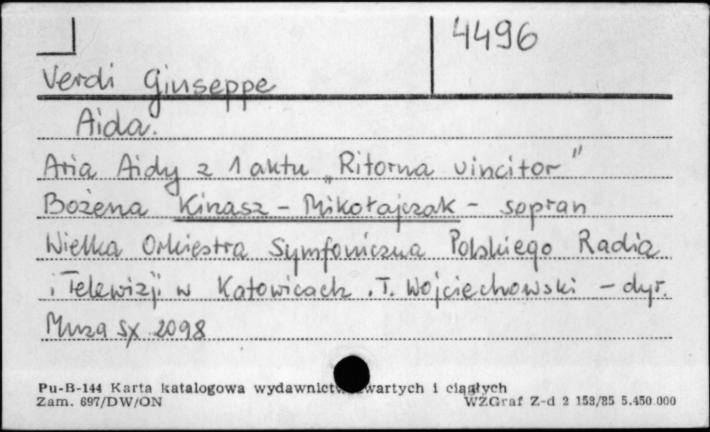 4496
Verdi Giuseppe
Aida.
Aria Aidy z 1 aktu „Ritorna vincitor"
Bożena Kinasz - Mikołajczak - sopran
Wielka Orkiestra Symfoniczna Polskiego Radia
i Telewizji w Katowicach . T. Wojciechowski - dyr.
Muza SX 2098
Pu-B-144 Karta katalogowa wydawnictw zwartych i ciągłych
Zam. 697/DW/ON WZGraf Z-d 2 153/85 5.450.000